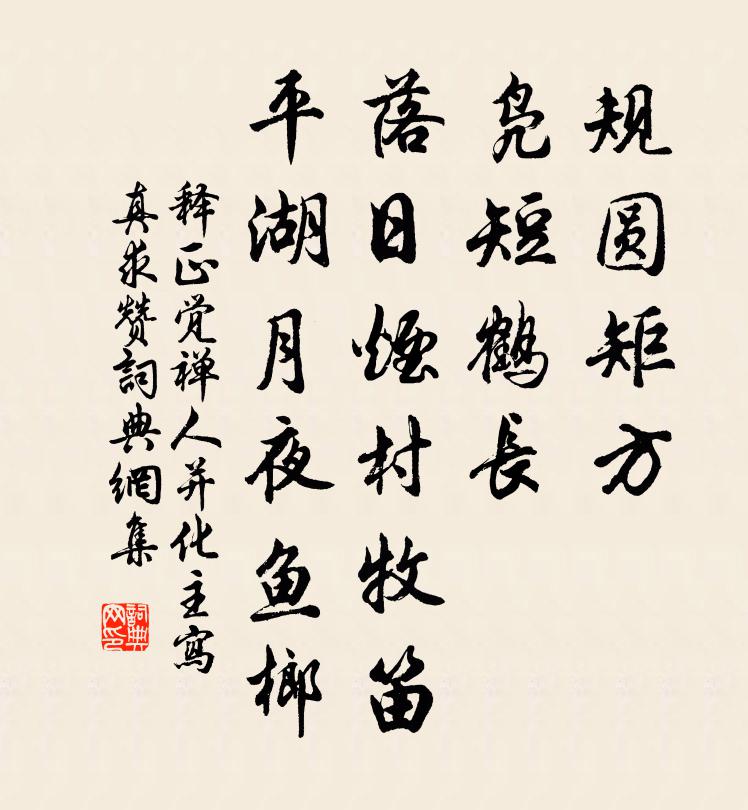 规圆矩方
凫短鹤长
落日烟村牧笛
平湖月夜鱼榔
释正觉禅人并化主写
真求赞詞典網集
詞典
网印